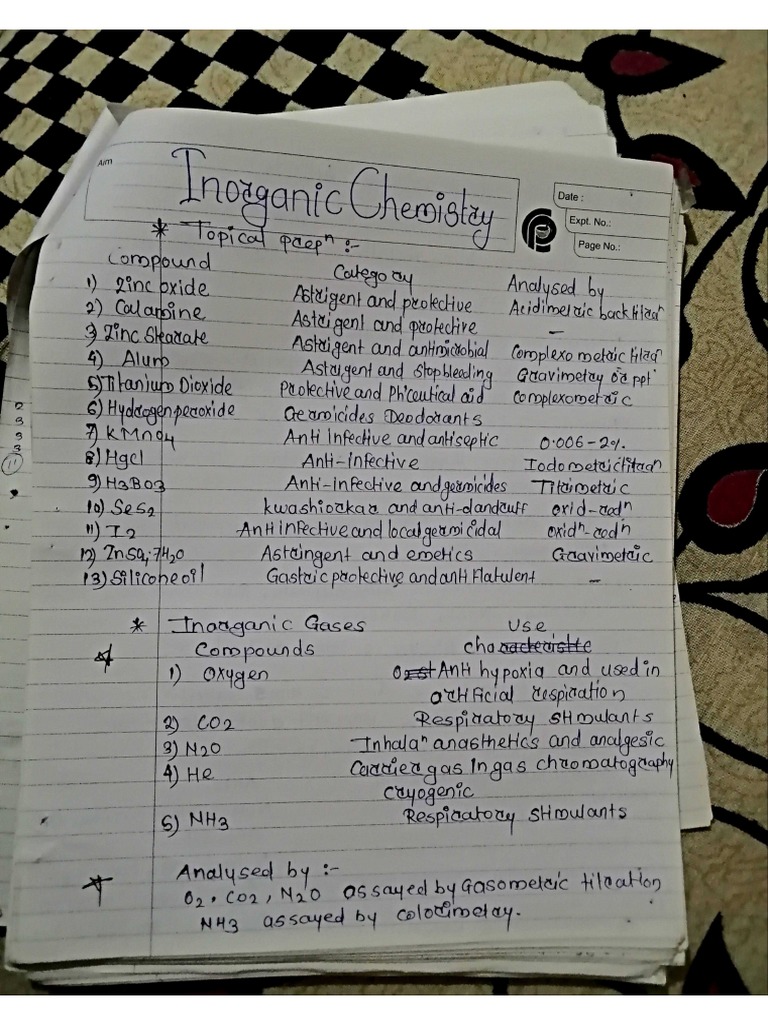 Aim
Inorganic Chemistry
Date :
Expt. No.:
Page No.:
* Topical prepⁿ :-
Compound Category Analysed by
1) Zinc oxide Astrigent and protective Acidimetric backtitraⁿ
2) Calamine Astrigent and protective —
3) Zinc Stearate Astrigent and antimicrobial Complexo metric titraⁿ
4) Alum Astrigent and stop bleeding Gravimetry or ppt
5) Titanium Dioxide Protective and Ph'ceutical aid complexometric
6) Hydrogen peroxide Germicides Deodorants
7) KMnO4 Anti Infective and antiseptic 0.006-2%.
8) Hgcl Anti-infective Iodometric titraⁿ
9) H3BO3 Anti-infective and germicides Titrimetric
10) SeS2 kwashiorkar and anti-dandruff oxid-redⁿ
11) I2 Anti infective and local germicidal oxidⁿ-redⁿ
12) ZnSO4.7H2O Astringent and emetics Gravimetric
13) Silicone oil Gastric protective and anti Flatulent —
* Inorganic Gases Use
Compounds characteristic
1) Oxygen Anti hypoxia and used in
artificial respiration
2) CO2 Respiratory stimulants
3) N2O Inhalaⁿ anasthetics and analgesic
4) He Carrier gas in gas chromatography
cryogenic
5) NH3 Respiratory stimulants
Analysed by :-
O2, CO2, N2O assayed by Gasometric titration
NH3 assayed by colorimetry.
2
3
3
3
11